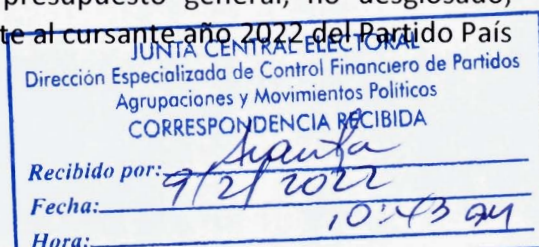 presupuesto general, no desglosado,
te al cursante año 2022 del Partido País
JUNTA CENTRAL ELECTORAL
Dirección Especializada de Control Financiero de Partidos
Agrupaciones y Movimientos Políticos
CORRESPONDENCIA RECIBIDA
Recibido por:
Fecha: 9/2/2022
Hora: 10:43 am